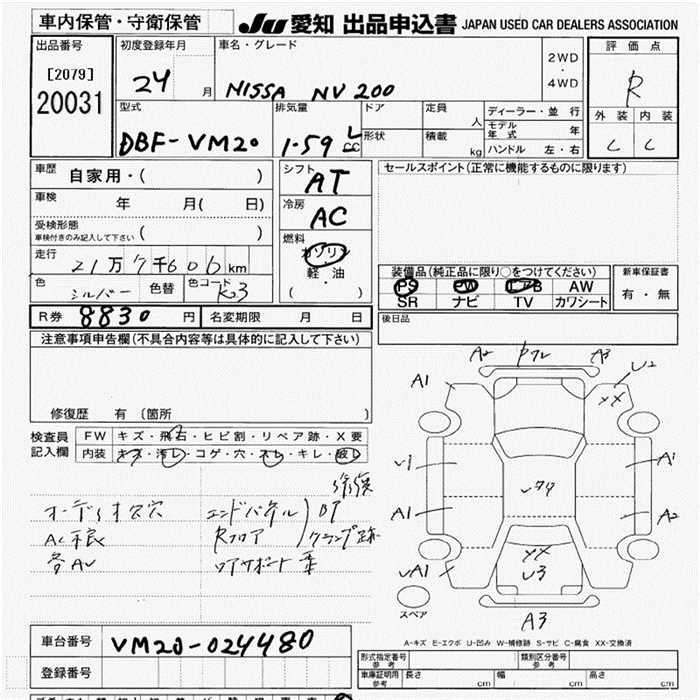 車内保管・守衛保管
JU 愛知 出品申込書 JAPAN USED CAR DEALERS ASSOCIATION
出品番号
[2079]
20031
初度登録年月
24 月
車名・グレード
NISSA NV 200
2WD
・
4WD
評価点
R
外装 内装
C C
型式
DBF-VM20
排気量
1.59 L
cc
ドア
形状
定員
人
積載
kg
ディーラー・並行
モデル
年式 年
ハンドル 左・右
車歴
自家用・( )
車検
年 月( 日)
受検形態
車検付きのみ記入して下さい ( )
走行
21万7千606km
色
シルバー
色替
色コード
K23
シフト
AT
冷房
AC
燃料
ガソリン
・
軽・油
( )
セールスポイント(正常に機能するものに限ります)
装備品(純正品に限り○をつけてください)
PS PW エアB AW
SR ナビ TV カワシート
新車保証書
有・無
後日品
R券 8830 円
名変期限 月 日
注意事項申告欄(不具合内容等は具体的に記入して下さい)
修復歴 有 (箇所 )
検査員
記入欄
FW キズ・飛石・ヒビ割・リペア跡・X要
内装 キズ・汚れ・コゲ・穴・スレ・キレ・破れ
オーディオ欠穴
AC不良
各AU
エンドパネル
Rフロア
ロアサポート
DT
クランプ跡
A2 A3 U2
A1 XX
U1 A1
A1 A2
UA1
XX
U3
A3
スペア
A-キズ E-エクボ U-凹み W-補修跡 S-サビ C-腐食 XX-交換済
車台番号 VM20-024480
登録番号
形式指定番号
参考
類別区分番号
参考
車庫証明用
参考
長さ cm 幅 cm 高さ cm